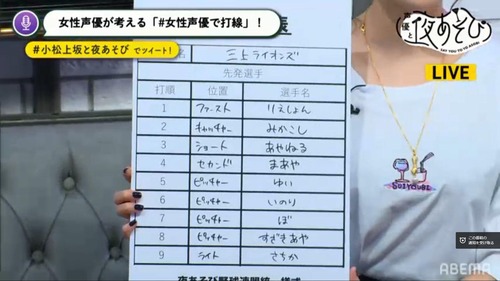 女性声優が考える「#女性声優で打線」!
#小松上坂と夜あそび でツイート!
声優と夜あそび
LIVE
表
三上ライオンズ
先発選手
打順 位置 選手名
1 ファースト りえしょん
2 キャッチャー みかこし
3 ショート あやねる
4 セカンド まあや
5 ピッチャー ゆい
6 ピッチャー いのり
7 ピッチャー ぽ
8 ピッチャー すざきあや
9 ライト さちか
ABEMA